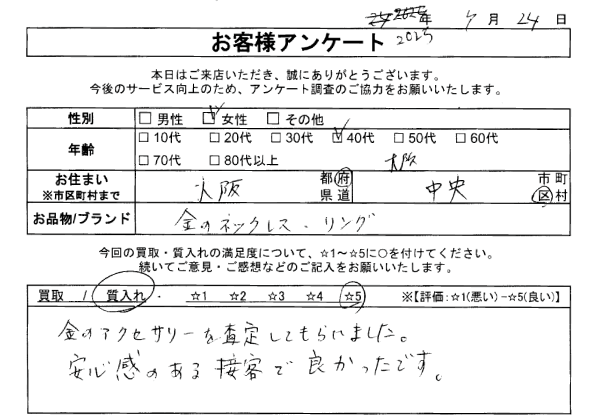 年 7月 24日
2025
お客様アンケート
本日はご来店いただき、誠にありがとうございます。
今後のサービス向上のため、アンケート調査のご協力をお願いいたします。
性別 □ 男性 ☑ 女性 □ その他
年齢 □ 10代 □ 20代 □ 30代 ☑ 40代 □ 50代 □ 60代
□ 70代 □ 80代以上
大阪
お住まい ※市区町村まで 大阪 都府県道 中央 市町区村
お品物/ブランド 金のネックレス・リング
今回の買取・質入れの満足度について、☆1～☆5に○を付けてください。
続いてご意見・ご感想などのご記入をお願いいたします。
買取 / 質入れ ・ ☆1 ☆2 ☆3 ☆4 ☆5 ※【評価:☆1(悪い)−☆5(良い)】
金のアクセサリーを査定してもらいました。
安心感のある接客で良かったです。